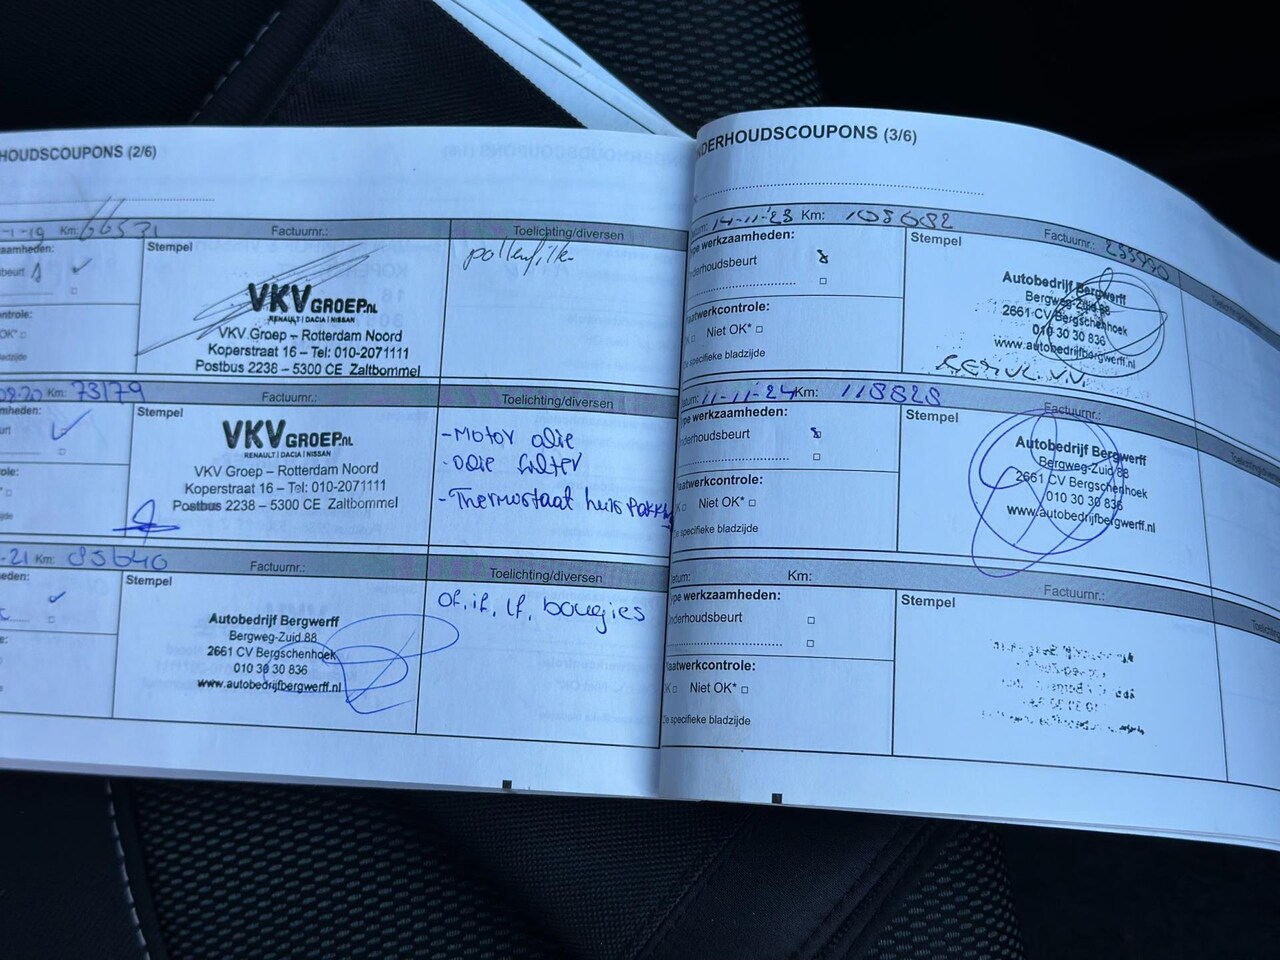 HOUDSCOUPONS (2/6)
-1-19 Km: 66531 Factuurnr.: Toelichting/diversen
aamheden:
beurt
ontrole:
OK*
ladzijde
Stempel
VKV GROEP.NL
RENAULT | DACIA | NISSAN
VKV Groep – Rotterdam Noord
Koperstraat 16 – Tel: 010-2071111
Postbus 2238 – 5300 CE Zaltbommel
pollenfilter
08-20 Km: 73179 Factuurnr.: Toelichting/diversen
mheden:
urt
ole:
jde
Stempel
VKV GROEP.NL
RENAULT | DACIA | NISSAN
VKV Groep – Rotterdam Noord
Koperstraat 16 – Tel: 010-2071111
Postbus 2238 – 5300 CE Zaltbommel
- Motor olie
- olie filter
- Thermostaat huis Pakking
-21 Km: 85640 Factuurnr.: Toelichting/diversen
eden:
e:
Stempel
Autobedrijf Bergwerff
Bergweg-Zuid 88
2661 CV Bergschenhoek
010 30 30 836
www.autobedrijfbergwerff.nl
of, if, lf, bougies
NDERHOUDSCOUPONS (3/6)
atum: 14-11-23 Km: 108682 Factuurnr.:
ype werkzaamheden:
nderhoudsbeurt
laatwerkcontrole:
K Niet OK*
ie specifieke bladzijde
Stempel
Autobedrijf Bergwerff
Bergweg-Zuid 88
2661 CV Bergschenhoek
010 30 30 836
www.autobedrijfbergwerff.nl
atum: 11-11-24 Km: 118828 Factuurnr.:
ype werkzaamheden:
nderhoudsbeurt
laatwerkcontrole:
K Niet OK*
ie specifieke bladzijde
Stempel
Autobedrijf Bergwerff
Bergweg-Zuid 88
2661 CV Bergschenhoek
010 30 30 836
www.autobedrijfbergwerff.nl
atum: Km: Factuurnr.:
ype werkzaamheden:
nderhoudsbeurt
laatwerkcontrole:
K Niet OK*
ie specifieke bladzijde
Stempel